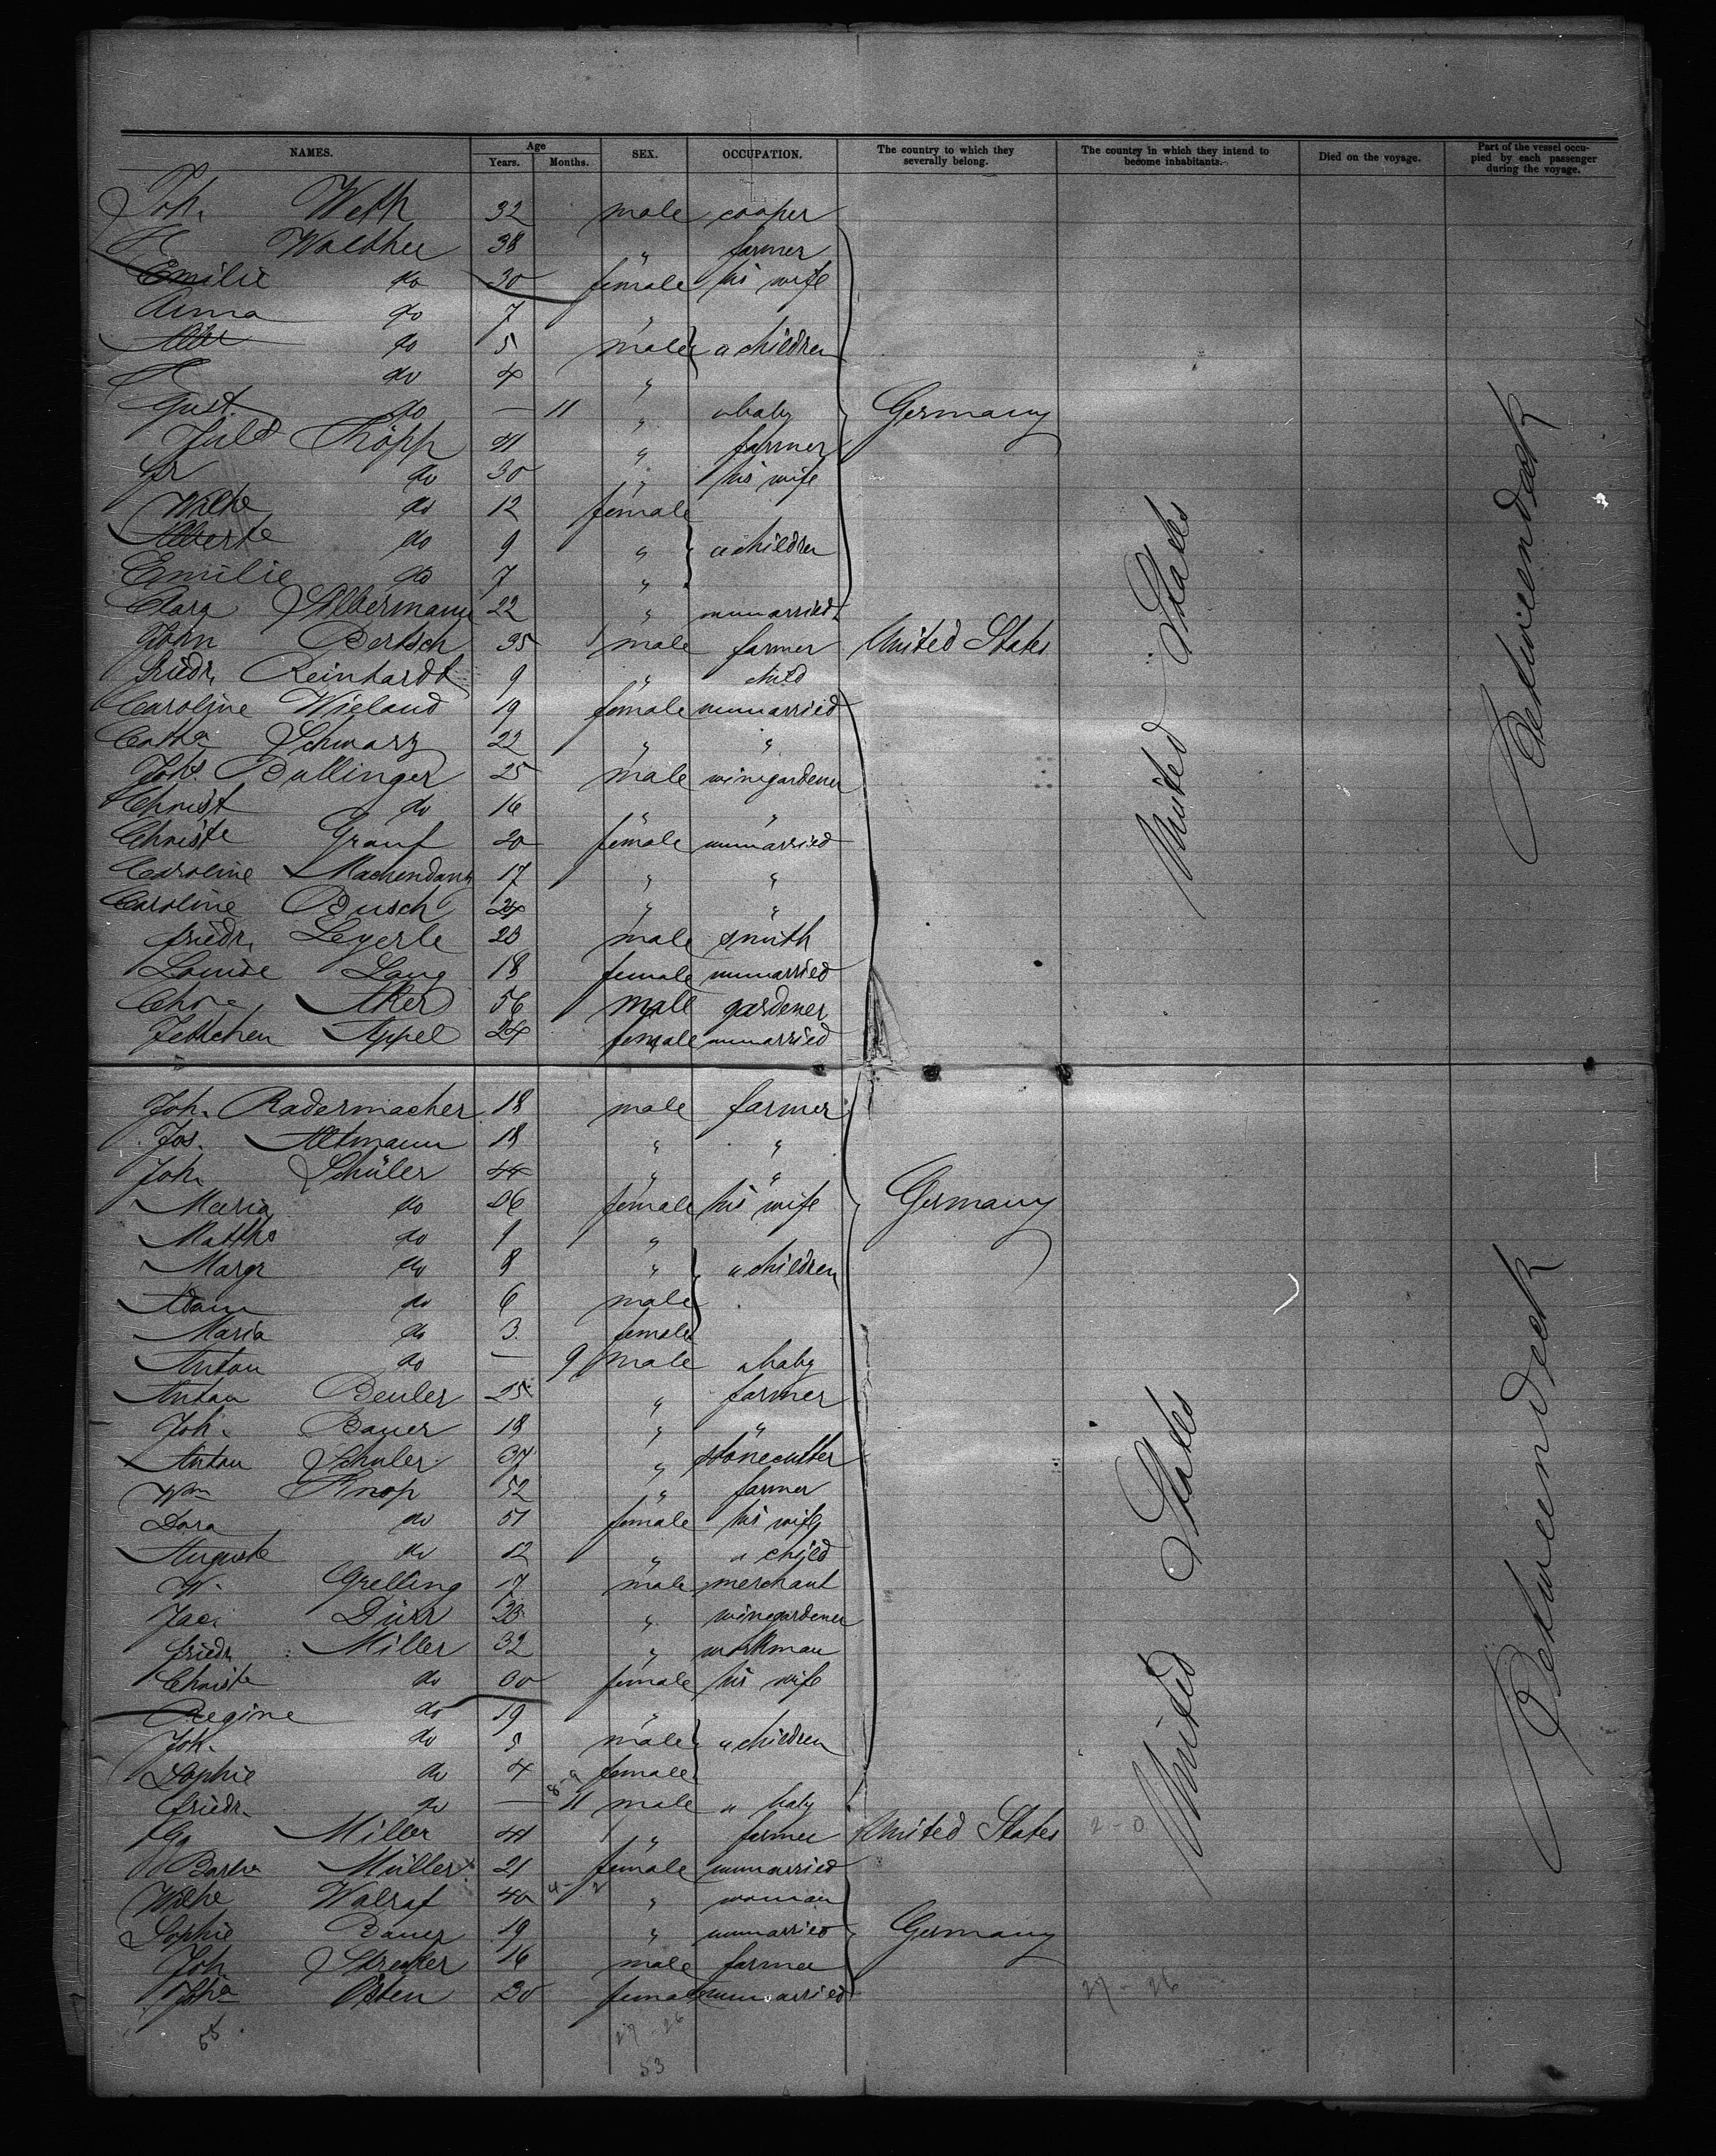 NAMES. Age Years. Months. SEX. OCCUPATION. The country to which they severally belong. The country in which they intend to become inhabitants. Died on the voyage. Part of the vessel occupied by each passenger during the voyage.
Joh. Weth 32 male cooper
Walther 38 " farmer
Emilie do 30 female his wife
Anna do 7 "
do 5 male a children
do 4 "
Gust. do — 11 " a baby Germany
Juls Köpp 41 " farmer
Fr do 30 " his wife
Wilhe do 12 female
Alberte do 9 " a children
Emilie do 7 "
Clara Silbermann 22 " unmarried
John Bertsch 35 male farmer United States
Friedr. Reinhardt 9 " child
Caroline Wieland 19 female unmarried
Cathe Schwarz 22 " "
Johs. Bullinger 25 male winegardener
Christ do 16 " "
Christe Grauf 20 female unmarried
Caroline Machendanz 17 " "
Caroline Busch 24 " "
Friedr. Leyerle 23 male smith
Louise Lang 18 female unmarried
Chre Aker 56 male gardener
Jettchen Appel 24 female unmarried
United States
Between deck
Joh. Radermacher 18 male farmer
Jos. Altmann 18 " "
Joh. Schüler 44 " "
Maria do 36 female his wife Germany
Matths do 9 "
Margr do 8 " a children
Adam do 6 male
Maria do 3 female
Anton do — 9 male a baby
Anton Beuler 25 " farmer
Joh. Bauer 18 " "
Anton Schuler 37 " stonecutter
Wm Knop 52 " farmer
Dora do 51 female his wife
Auguste do 12 " a child
W. Grelling 17 male merchant
Jac. Dürr 23 " winegardener
Friedr. Miller 32 " workman
Christe do 30 female his wife
Regine do 19 "
Joh. do 5 male a children
Sophie do 4 female
Friedr. do — 11 male a baby
Go Miller 41 " farmer United States 2-0
Barba Müller 21 female unmarried
Wilhe Walraf 40 " woman
Sophie Bauer 19 " unmarried Germany
Joh Strecker 16 male farmer
Joha Osten 30 female unmarried 27-26
United States
Between deck
55 27-26
53